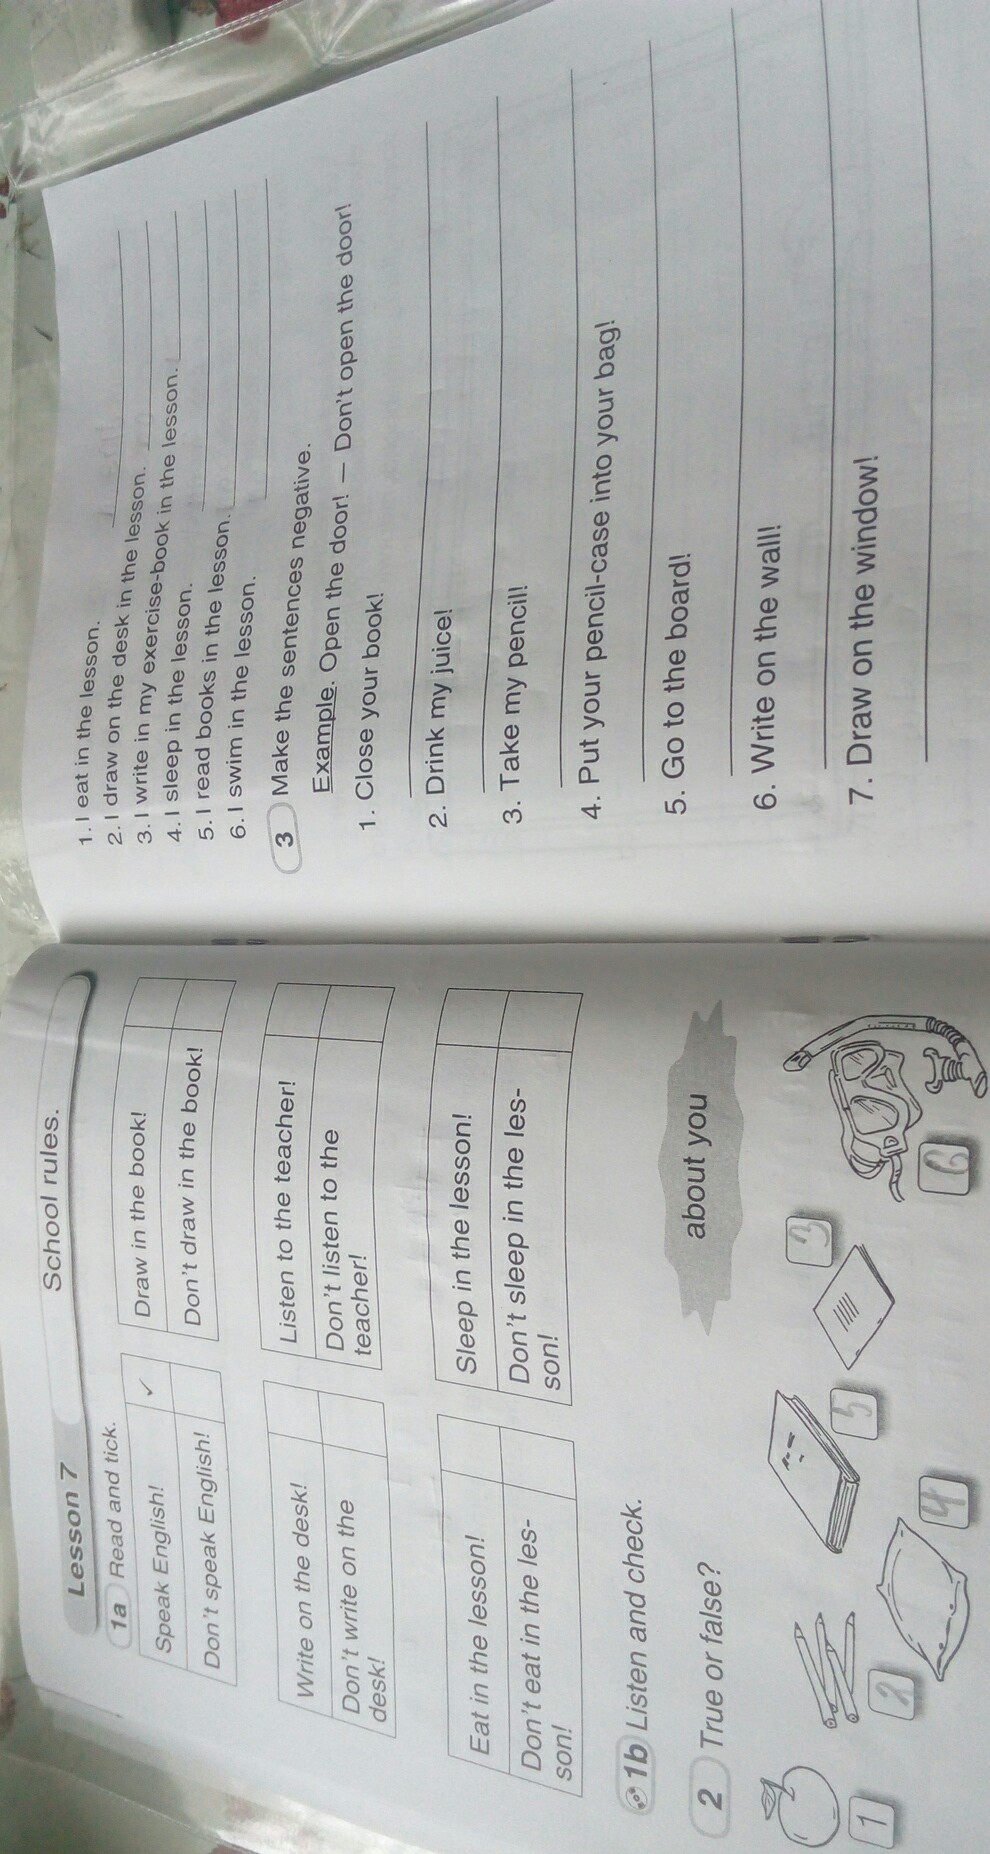 Lesson 7
School rules.
1a Read and tick.
Speak English! ✓
Don't speak English!
Draw in the book!
Don't draw in the book!
Write on the desk!
Don't write on the
desk!
Listen to the teacher!
Don't listen to the
teacher!
Eat in the lesson!
Don't eat in the les-
son!
Sleep in the lesson!
Don't sleep in the les-
son!
1b Listen and check.
2 True or false?
about you
1
2
4
5
3
6
1. I eat in the lesson.
2. I draw on the desk in the lesson.
3. I write in my exercise-book in the lesson.
4. I sleep in the lesson.
5. I read books in the lesson.
6. I swim in the lesson.
3 Make the sentences negative.
Example. Open the door! — Don't open the door!
1. Close your book!
2. Drink my juice!
3. Take my pencil!
4. Put your pencil-case into your bag!
5. Go to the board!
6. Write on the wall!
7. Draw on the window!